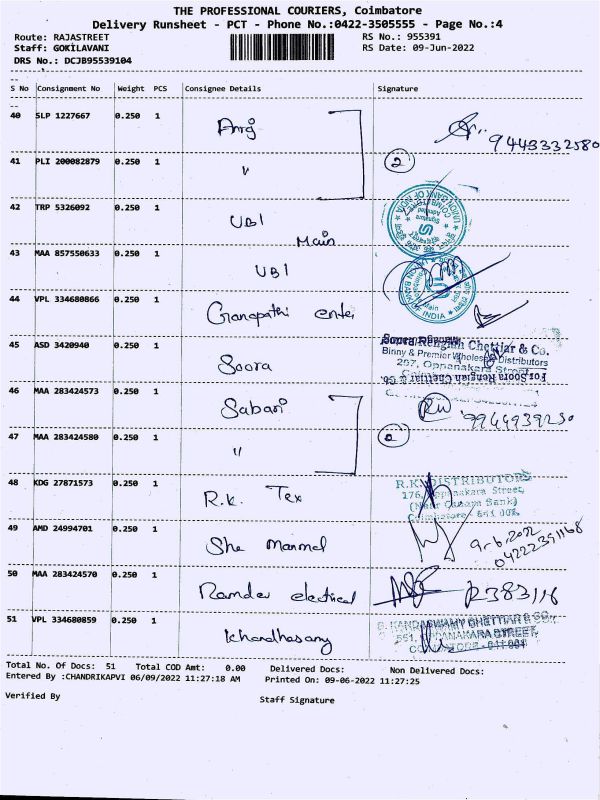 THE PROFESSIONAL COURIERS, Coimbatore
Delivery Runsheet - PCT - Phone No.:0422-3505555 - Page No.:4
Route: RAJASTREET RS No.: 955391
Staff: GOKILAVANI RS Date: 09-Jun-2022
DRS No.: DCJB95539104
S No Consignment No Weight PCS Consignee Details Signature
40 SLP 1227667 0.250 1
9443332580
41 PLI 200082879 0.250 1 " 2
42 TRP 5326092 0.250 1 UBI
UNION BANK OF INDIA
Main
43 MAA 857550633 0.250 1 UBI
BANK OF INDIA
Main
44 VPL 334680866 0.250 1 Ganapathi enter
45 ASD 3420940 0.250 1 Soora
Soora Rengiah Chettiar & Co.
Binny & Premier Wholesale Distributors
297, Oppanakara Street
For Soora Rengiah Chettiar & Co.
46 MAA 283424573 0.250 1 Sabari
9944939230
47 MAA 283424580 0.250 1 " 2
48 KDG 27871573 0.250 1 R.K. Tex
R.K. DISTRIBUTORS
176, Oppanakara Street,
(Near Canara Bank)
Coimbatore - 641 001.
49 AMD 24994701 0.250 1 She
9-6.2022
04222391168
50 MAA 283424570 0.250 1 Ramdev electrical
51 VPL 334680859 0.250 1 Khandhasamy
B. KANDASWAMY CHETTIAR & CO.
551, OPPANAKARA STREET,
COIMBATORE - 641 001
Total No. Of Docs: 51 Total COD Amt: 0.00 Delivered Docs: Non Delivered Docs:
Entered By :CHANDRIKAPVI 06/09/2022 11:27:18 AM Printed On: 09-06-2022 11:27:25
Verified By Staff Signature